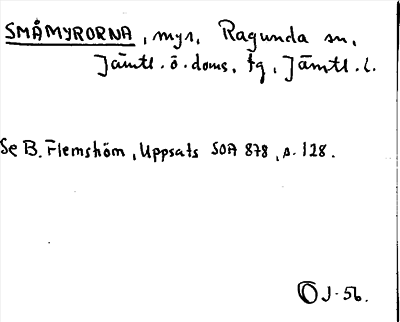 SMÅMYRORNA, myr, Ragunda sn,
Jämtl. ö. doms. tg, Jämtl. l.
Se B. Flemström, Uppsats SOA 878, s. 128.
OJ-56.